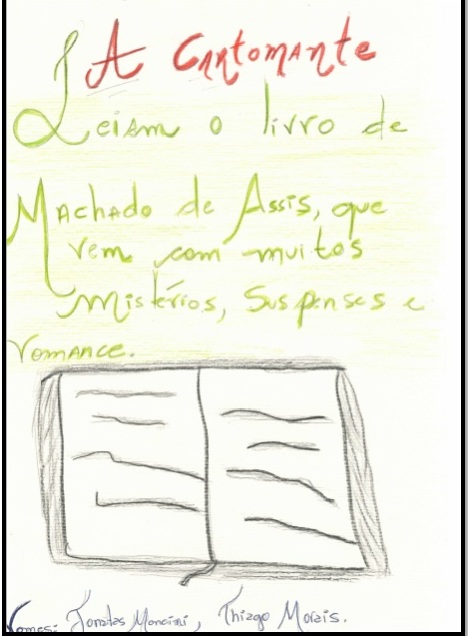 A Cartomante
Leiam o livro de
Machado de Assis, que
vem com muitos
mistérios, Suspenses e
romance.
Nomes: Jonatas Moncini, Thiago Morais.